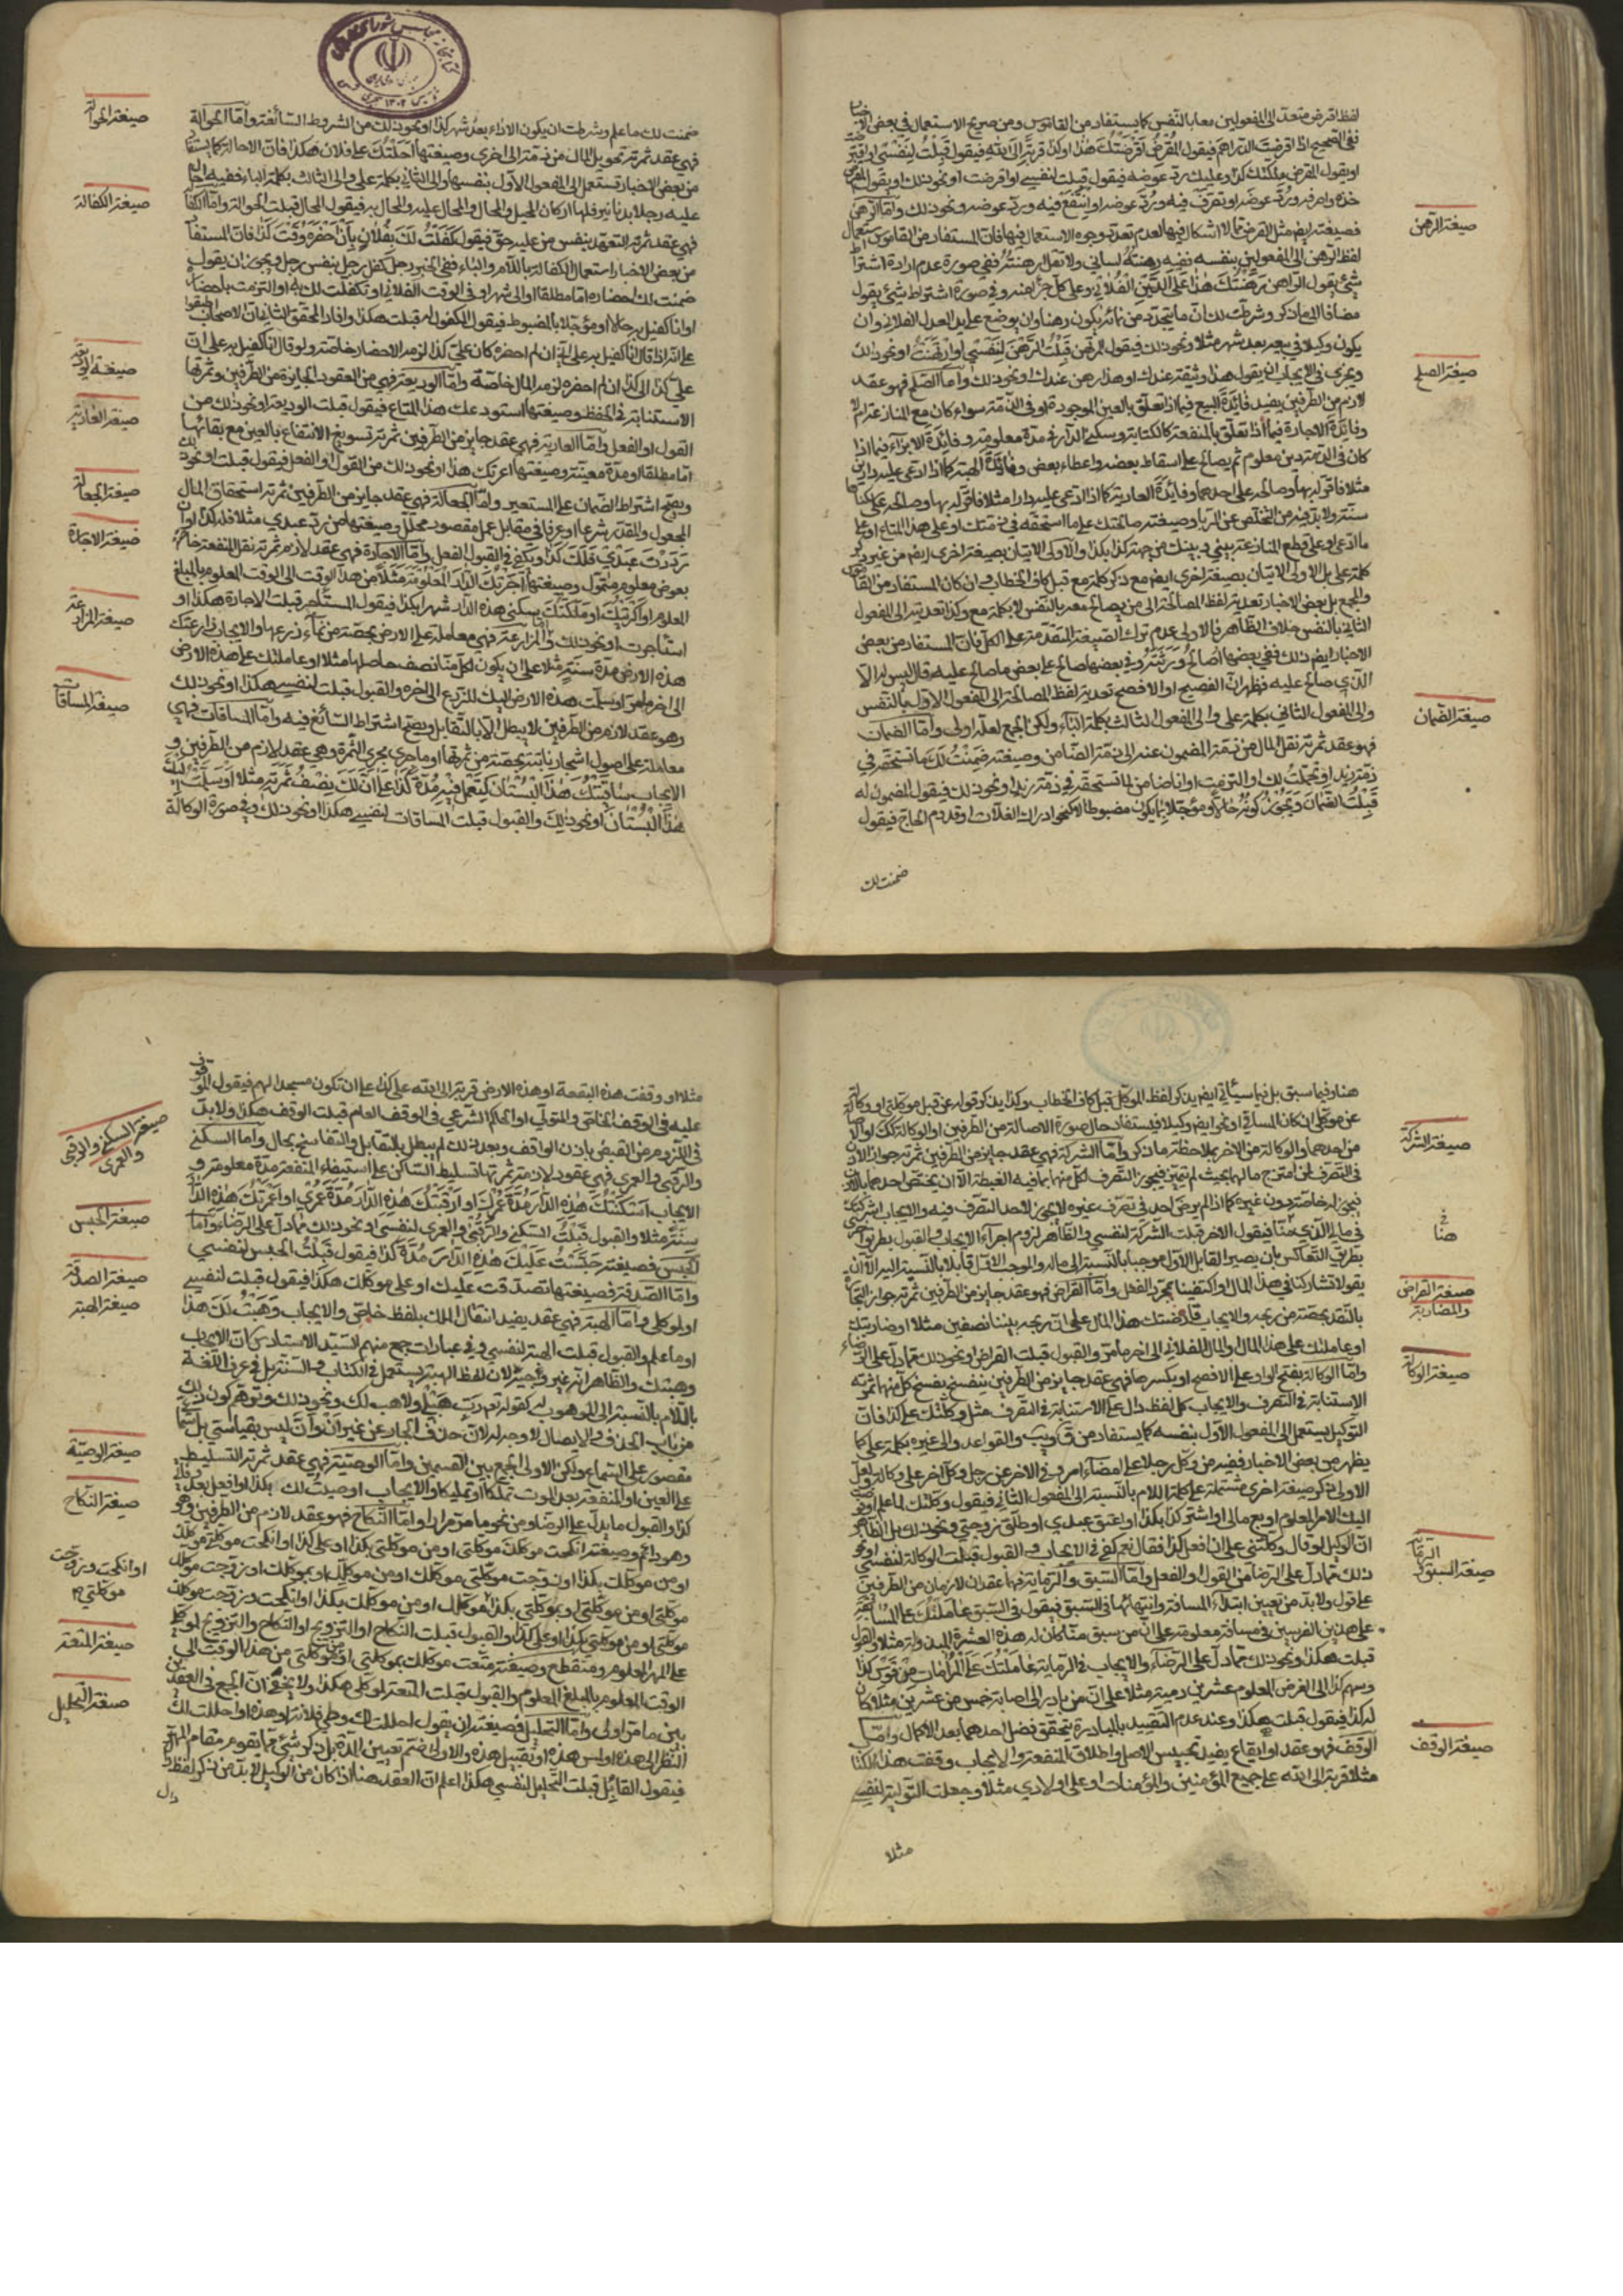 لفظ اقرض متعد الى المفعولين معا بالنفس كما يستفاد من القاموس ومن صريح الاستعمال في بعض
ففي الصحيح اذا اقرضت الدراهم فيقول المقرض اقرضتك هذا او كذا قربة الى الله فيقول قبلت لنفسي او اقترضت
او يقول المقرض ملكتك كذا وعليك رد عوضه فيقول قبلت لنفسي او اقرضت او نحو ذلك او يقول المقرض
خذه واصرفه ورد عوضه او تصرف فيه ورد عوضه او انتفع فيه ورد عوضه ونحو ذلك واما الرهن
صيغة الرهن
فصيغته ايضا مثل القرض مما لا اشكال فيها لعدم تعدد وجوه الاستعمال فيها فان المستفاد من القاموس استعمال
لفظ الرهن الى المفعولين بنفسه ففيه رهنته لساني ولا تقل ارهنته ففي صورة عدم ارادة اشتراط
شيء يقول الراهن رهنتك هذا على الدين الفلاني وعلى كل جزء منه وفي صورة اشتراط شيء يقول
مضافا الى ما ذكر وشرطت لك ان ما يتجدد من نمائه يكون رهنا وان يوضع على يد العدل الفلاني وان
يكون وكيلا في بيعه بعد شهر مثلا ونحو ذلك فيقول المرتهن قبلت الرهن لنفسي او ارتهنت او نحو ذلك
صيغة الصلح
ويجزي في الايجاب ان يقول هذا وثيقة عندك او هذا رهن عندك او نحو ذلك واما الصلح فهو عقد
لازم من الطرفين يفيد فائدة البيع فيما اذا تعلق بالعين الموجودة او في الذمة سواء كان مع المنازعة ام لا
وفائدة الاجارة فيما اذا تعلق بالمنفعة كالكتابة وسكنى الدار في مدة معلومة وفائدة الابراء فيما اذا
كان في الذمة دين معلوم ثم يصالح على اسقاط بعضه واعطاء بعض وفائدة الهبة كما اذا ادعى عليه دارين
مثلا فاقر له بهما وصالحه على احدهما وفائدة العارية كما اذا ادعى عليه دارا مثلا فاقر له بها وصالحه على سكناها
سنة ولا بد فيه من التخلص عن الربا وصيغته صالحتك على ما استحقه في ذمتك او على هذا المتاع او على
ما ادعى او على قطع المنازعة بيني وبينك من جهة كذا بكذا والاولى الاتيان بصيغة اخرى ايضا من غير ذكر
كلمة على بل الاولى الاتيان بصيغة اخرى ايضا مع ذكر كلمة مع قبل كاف الخطاب فان كان المستفاد من القاموس
والمجمع بل بعض الاخبار تعدية لفظ المصالحة الى من يصالح معه بالنفس لا بكلمة مع وكذا تعديته الى المفعول
الثاني بالنفس خلاف الظاهر فالاولى عدم ترك الصيغة المتقدمة على الكل فان المستفاد من بعض
الاخبار ايضا ذلك ففي بعضها اصالح ورثته وفي بعضها صالح على بعض ما صالح عليه وقال ليس له الا
الذي صالح عليه فظهر ان الفصيح او الافصح تعدية لفظ المصالحة الى المفعول الاول بالنفس
صيغة الضمان
والى المفعول الثاني بكلمة على والى المفعول الثالث بكلمة الباء ولكن الجمع لعله اولى واما الضمان
فهو عقد ثمرته نقل المال من ذمة المضمون عنه الى ذمة الضامن وصيغته ضمنت لك ما تستحقه في
ذمة زيد او تحملت لك او التزمت او انا ضامن لما تستحقه في ذمة زيد او نحو ذلك فيقول المضمون له
قبلت الضمان ويجوز كونه حالا ومؤجلا بما يكون مضبوطا لا كنحو ادراك الغلات وقدوم الحاج فيقول
ضمنت لك
صيغة الحوالة
ضمنت لك ما علم وشرطت ان يكون الاداء بعد شهر كذا او نحو ذلك من الشروط السائغة واما الحوالة
فهي عقد ثمرته تحويل المال من ذمة الى اخرى وصيغتها احلتك على فلان هكذا فان الاحالة كما يستفاد
من بعض الاخبار تستعمل الى المفعول الاول بنفسها والى الثاني بكلمة على والى الثالث بكلمة الباء
صيغة الكفالة
عليه رجلا بدنانير فلها اركان المحيل والمحال والمحال عليه والمحال به فيقول المحال قبلت الحوالة واما الكفالة
فهي عقد ثمرته التعهد بنفس من عليه حق فيقول كفلت لك بفلان بان احضره وقت كذا فان المستفاد
من بعض الاخبار استعمال الكفالة باللام والباء ففي الخبر رجل كفل لرجل بنفس رجل ويجوز ان يقول
ضمنت لك احضاره اما مطلقا او الى شهر او في الوقت الفلاني او تكفلت لك به او التزمت باحضاره
او انا كفيل به حالا او مؤجلا بالمضبوط فيقول المكفول له قبلت هكذا وافاد المحقق الثاني ان الاصحاب اطبقوا
صيغة الوديعة
على انه اذا قال انا كفيل به على انه ان لم احضره كان علي كذا لزمه الاحضار خاصة ولو قال انا كفيل به على ان
علي كذا الى كذا ان لم احضره لزمه المال خاصة واما الوديعة فهي من العقود الجايزة من الطرفين وثمرتها
صيغة العارية
الاستنابة في الحفظ وصيغتها استودعك هذا المتاع فيقول قبلت الوديعة او نحو ذلك من
القول او الفعل واما العارية فهي عقد جايز من الطرفين ثمرته تسويغ الانتفاع بالعين مع بقائها
اما مطلقا او مدة معينة وصيغتها اعرتك هذا او نحو ذلك من القول او الفعل فيقول قبلت او نحو ذلك
صيغة الجعالة
ويصح اشتراط الضمان على المستعير واما الجعالة فهي عقد جايز من الطرفين ثمرته استحقاق المال
المجعول والمقدر شرعا او عرفا في مقابل عمل مقصود محلل وصيغتها من رد عبدي مثلا فله كذا او ان
صيغة الاجارة
رددت عبدي فلك كذا ويكفي في القبول الفعل واما الاجارة فهي عقد لازم ثمرته نقل المنفعة خاصة
بعوض معلوم متمول وصيغتها آجرتك الدار المعلومة مثلا من هذا الوقت الى الوقت المعلوم بالمبلغ
صيغة المزارعة
المعلوم او اكريتك او ملكتك سكنى هذه الدار شهرا بكذا فيقول المستأجر قبلت الاجارة هكذا او
استأجرت او نحو ذلك والمزارعة فهي معاملة على الارض بحصة من نماء زرعها والايجاب زارعتك
هذه الارض مدة سنة مثلا على ان يكون لكل منا نصف حاصلها مثلا او عاملتك على هذه الارض
صيغة المساقات
الى اخر ما مر او سلمت هذه الارض اليك للزرع الى اخره والقبول قبلت لنفسي هكذا او نحو ذلك
وهو عقد لازم من الطرفين لا يبطل الا بالتقايل ويصح اشتراط السائغ فيه واما المساقات فهي
معاملة على اصول اشجار ثابتة بحصة من ثمرتها او ما جرى مجرى الثمرة وهي عقد لازم من الطرفين و
الايجاب ساقيتك هذا البستان لتعمل فيه مدة كذا على ان لك نصف ثمرته مثلا او سلمت اليك
هذا البستان او نحو ذلك والقبول قبلت المساقات لنفسي هكذا او نحو ذلك وفي صورة الوكالة
هنا وفيما سبق بل فيما سيأتي ايضا يذكر لفظ الموكل قبل كاف الخطاب وكذا يذكر قوله عن قبل موكلتي او وكالة
عن موكلي ان كان المساقي او نحو ايضا وكيلا فيستفاد حال صورة الاصالة من الطرفين او الوكالة كذلك او الاصالة
صيغة الشركة
من احدهما والوكالة من الاخر بملاحظة ما ذكر واما الشركة فهي عقد جايز من الطرفين ثمرته جواز الاذن
في التصرف لمن امتزج مالهما بحيث لم يتميز فيجوز التصرف لكل منهما بما فيه الغبطة الا ان يختص احدهما بالاذن
فيجوز له خاصة دون غيره كما اذا لم يرض احد في تصرف غيره لا يجوز لاحد التصرف فيه والايجاب اشركتك
هنا
في مايه الذي هنا فيقول الاخر قبلت الشركة لنفسي والظاهر لزوم اجراء الايجاب والقبول بطريق اخرى
بطريق التعاكس بان يصير القابل الاول موجبا بالنسبة الى ماله والموجب الاول قابلا بالنسبة اليه الا ان
صيغة القراض
والمضاربة
يقولا تشاركنا في هذا المال او اكتفينا بمجرد الفعل واما القراض فهو عقد جايز من الطرفين ثمرته جواز التجارة
بالنقد بحصة من ربحه والايجاب قارضتك هذا المال على ان ربحه بيننا نصفين مثلا او ضاربتك
او عاملتك على هذا المال او المال الفلاني الى اخر ما مر والقبول قبلت القراض او نحو ذلك مما دل على الرضاء
صيغة الوكالة
واما الوكالة بفتح الواو على الافصح او بكسرها فهي عقد جايز من الطرفين ينفسخ بفسخ كل منهما ثمرته
الاستنابة في التصرف والايجاب كل لفظ دل على الاستنابة في التصرف مثل وكلتك على كذا فان
التوكيل يستعمل الى المفعول الاول بنفسه كما يستفاد من ق ويب والقواعد والى غيره بكلمة على كما
يظهر من بعض الاخبار ففيه من وكل رجلا على امضاء امر وفي الاخر عن رجل وكل آخر على وكالة ولعل
الاولى ذكر صيغة اخرى مشتملة على كلمة اللام بالنسبة الى المفعول الثاني فيقول وكلتك لما علم او فوضت
اليك الامر المعلوم او بع مالي او اشتر كذا بكذا او اعتق عبدي او طلق زوجتي ونحو ذلك بل الظاهر
صيغة السبق والرماية
ان الوكيل لو قال وكلتني على ان افعل كذا فقال نعم كفى في الايجاب والقبول قبلت الوكالة لنفسي او نحو
ذلك مما دل على الرضا من القول والفعل واما السبق والرماية فهما عقدان لازمان من الطرفين
على قول ولا بد من تعيين ابتداء المسافة وانتهائها في السبق فيقول في السبق عاملتك على المسابقة
على هذين الفرسين في مسافة معلومة على ان من سبق منا كان له هذه العشرة المبذولة مثلا والقبول
قبلت هكذا ونحو ذلك مما دل على الرضاء والايجاب في الرماية عاملتك على المراماة من قوس كذا
وسهم كذا الى الغرض المعلوم عشرين رمية مثلا على ان من بادر الى اصابة خمس من عشرين مثلا كان
له كذا فيقول قبلت هكذا وعند عدم التقييد بالمبادرة يتحقق فضل احدهما بعد الاكمال واما
صيغة الوقف
الوقف فهو عقد او ايقاع يفيد تحبيس الاصل واطلاق المنفعة والايجاب وقفت هذا الكتاب
مثلا قربة الى الله على جميع المؤمنين والمؤمنات او على اولادي مثلا وجعلت التولية لنفسي
مثلا
مثلا او وقفت هذه البقعة او هذه الارض قربة الى الله على كذا على ان تكون مسجدا لهم فيقول الموقوف
عليه في الوقف الخاص والمتولي او الحاكم الشرعي في الوقف العام قبلت الوقف هكذا ولا بد
صيغة السكنى والرقبى
والعمرى
في اللزوم من القبض باذن الواقف وبعد ذلك لم يبطل بالتقايل والتفاسخ بحال واما السكنى
والرقبى والعمرى فهي عقود لازمة ثمرتها تسليط الساكن على استيفاء المنفعة مدة معلومة و
الايجاب اسكنتك هذه الدار مدة عمرك او ارقبتك هذه الدار مدة عمري او اعمرتك هذه الدار
صيغة الحبس
سنة مثلا والقبول قبلت السكنى والرقبى والعمرى لنفسي او نحو ذلك مما دل على الرضاء واما
الحبس فصيغته حبست عليك هذه الدار مدة كذا فيقول قبلت الحبس لنفسي
صيغة الصدقة
واما الصدقة فصيغتها تصدقت عليك او على موكلك هكذا فيقول قبلت لنفسي
صيغة الهبة
او لموكلي واما الهبة فهي عقد يفيد انتقال الملك بلفظ خاص والايجاب وهبت لك هذا
او ما علم والقبول قبلت الهبة لنفسي وفي عبارات جمع منهم السيد الاستاد ان الايجاب
وهبتك والظاهر انه غير وجيه لان لفظ الهبة يستعمل في الكتاب والسنة بل في عرف اللغة
باللام بالنسبة الى الموهوب له كقوله تع رب هب لي ولاهب لك ونحو ذلك وتوهم كون ذلك
من باب الحذف والايصال لا وجه له لان حذف الجار عن غير ان وان ليس بقياسي بل انما
صيغة الوصية
مقصور على السماع ولكن الاولى الجمع بين القسمين واما الوصية فهي عقد ثمرته التسليط
على العين او المنفعة بعد الموت تملكا او تمليكا والايجاب اوصيت لك بكذا او افعل بعد وفاتي
صيغة النكاح
كذا والقبول ما يدل على الرضاء من نحو ما مر مرارا واما النكاح فهو عقد لازم من الطرفين وهو
وهو دائم وصيغته انكحت موكلك موكلتي او من موكلتي بكذا او على كذا او انكحت موكلتي موكلك
او انكحت وزوجت
موكلتي م
او من موكلك بكذا او زوجت موكلتي موكلك او من موكلك او بموكلك او زوجت موكلك
موكلتي او من موكلتي او بموكلتي بكذا موكلك او من موكلك بكذا او انكحت وزوجت موكلك
موكلتي او من موكلتي بكذا او على كذا والقبول قبلت النكاح او التزويج او النكاح والتزويج لموكلي
صيغة المتعة
على المهر المعلوم ومنقطع وصيغته متعت موكلك بموكلتي او من موكلتي من هذا الوقت الى
الوقت المعلوم بالمبلغ المعلوم والقبول قبلت المتعة لموكلي هكذا ولا يخفى ان الجمع في العقد
صيغة التحليل
بين ما مر اولى واما التحليل فصيغته ان يقول احللت لك وطي فلانة او هذه او احللت لك
النظر الى هذه او لمس هذه او تقبيل هذه والاولى ضم تعيين المدة بل ذكر شيء مما يقوم مقام المهر
فيقول القابل قبلت التحليل لنفسي هكذا اعلم ان العقد هنا اذا كان من الوكيل لا بد من ذكر لفظ
دال